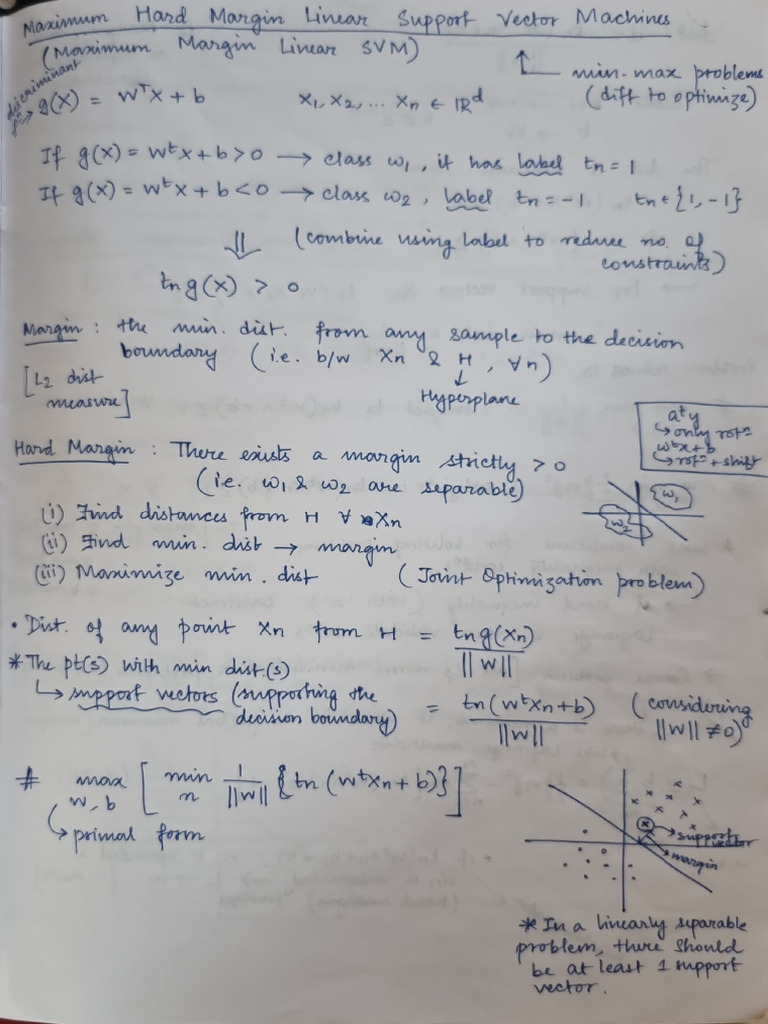 Maximum Hard Margin Linear Support Vector Machines
(Maximum Margin Linear SVM)
min-max problems
(diff to optimize)
discriminant
fⁿ → g(x) = wᵀx + b      x₁, x₂, ... xn ∈ ℝᵈ
If g(x) = wᵗx + b > 0 → class ω₁, it has label tn = 1
If g(x) = wᵗx + b < 0 → class ω₂, label tn = -1   tn ∈ {1, -1}
⇓ (combine using label to reduce no. of
constraints)
tn g(x) > 0
Margin : the min. dist. from any sample to the decision
boundary (i.e. b/w Xn & H, ∀n)
[L2 dist
measure]
↓
Hyperplane
aᵗy
↳ only rotⁿ
wᵗx + b
↳ rotⁿ + shift
Hard Margin : There exists a margin strictly > 0
(i.e. ω₁ & ω₂ are separable)
ω₁
ω₂
(i) Find distances from H ∀ Xn
(ii) Find min. dist → margin
(iii) Maximize min. dist   (Joint Optimization problem)
• Dist. of any point Xn from H = tn g(xn) / ||w||
* The pt(s) with min dist.(s)
↳ support vectors (supporting the
decision boundary) = tn(wᵗxn + b) / ||w||   (considering
||w|| ≠ 0)
# max w, b [ min n 1/||w|| {tn (wᵗxn + b)} ]
↳ primal form
support
vector
margin
* In a linearly separable
problem, there should
be at least 1 support
vector.